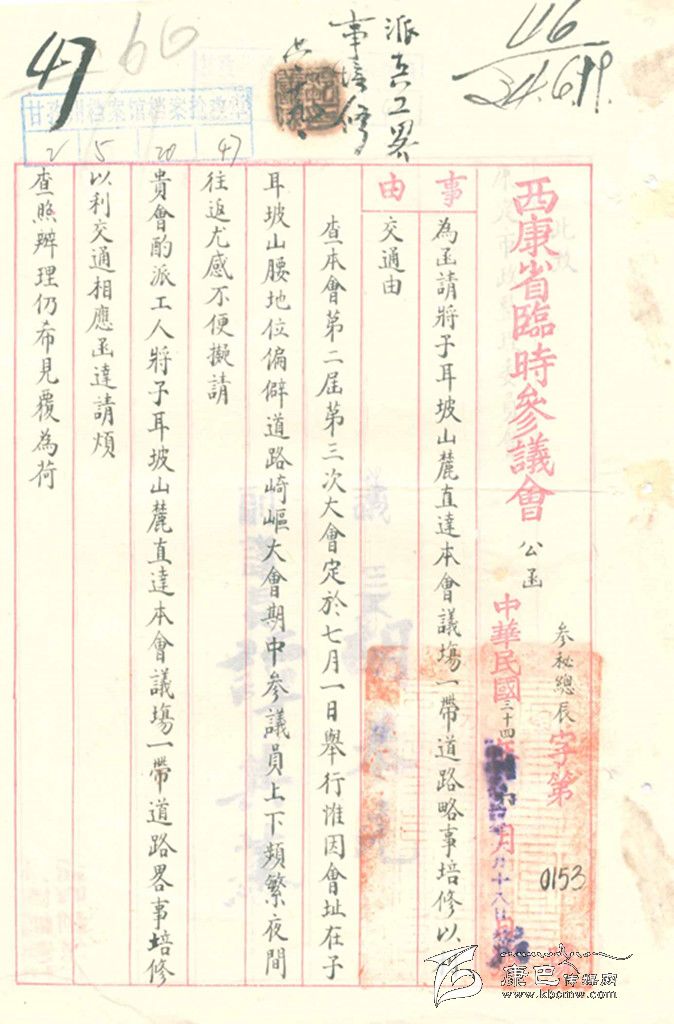 西康省臨時參議會 公函
參秘總辰字第0153
中華民國三十四年 月 十八日
事由
為函請將子耳坡山麓直達本會議場一帶道路略事培修以利
交通由
查本會第二屆第三次大會定於七月一日舉行惟因會址在子
耳坡山腰地位偏僻道路崎嶇大會期中參議員上下頻繁夜間
往返尤感不便擬請
貴會酌派工人將子耳坡山麓直達本會議場一帶道路畧事培修
以利交通相應函達請煩
查照辦理仍希見覆為荷
派 工畧
事培修
46
34.6.19.
47
60
甘孜州档案馆档案
2 5 20 47
康巴传媒网
www.kbcmw.com